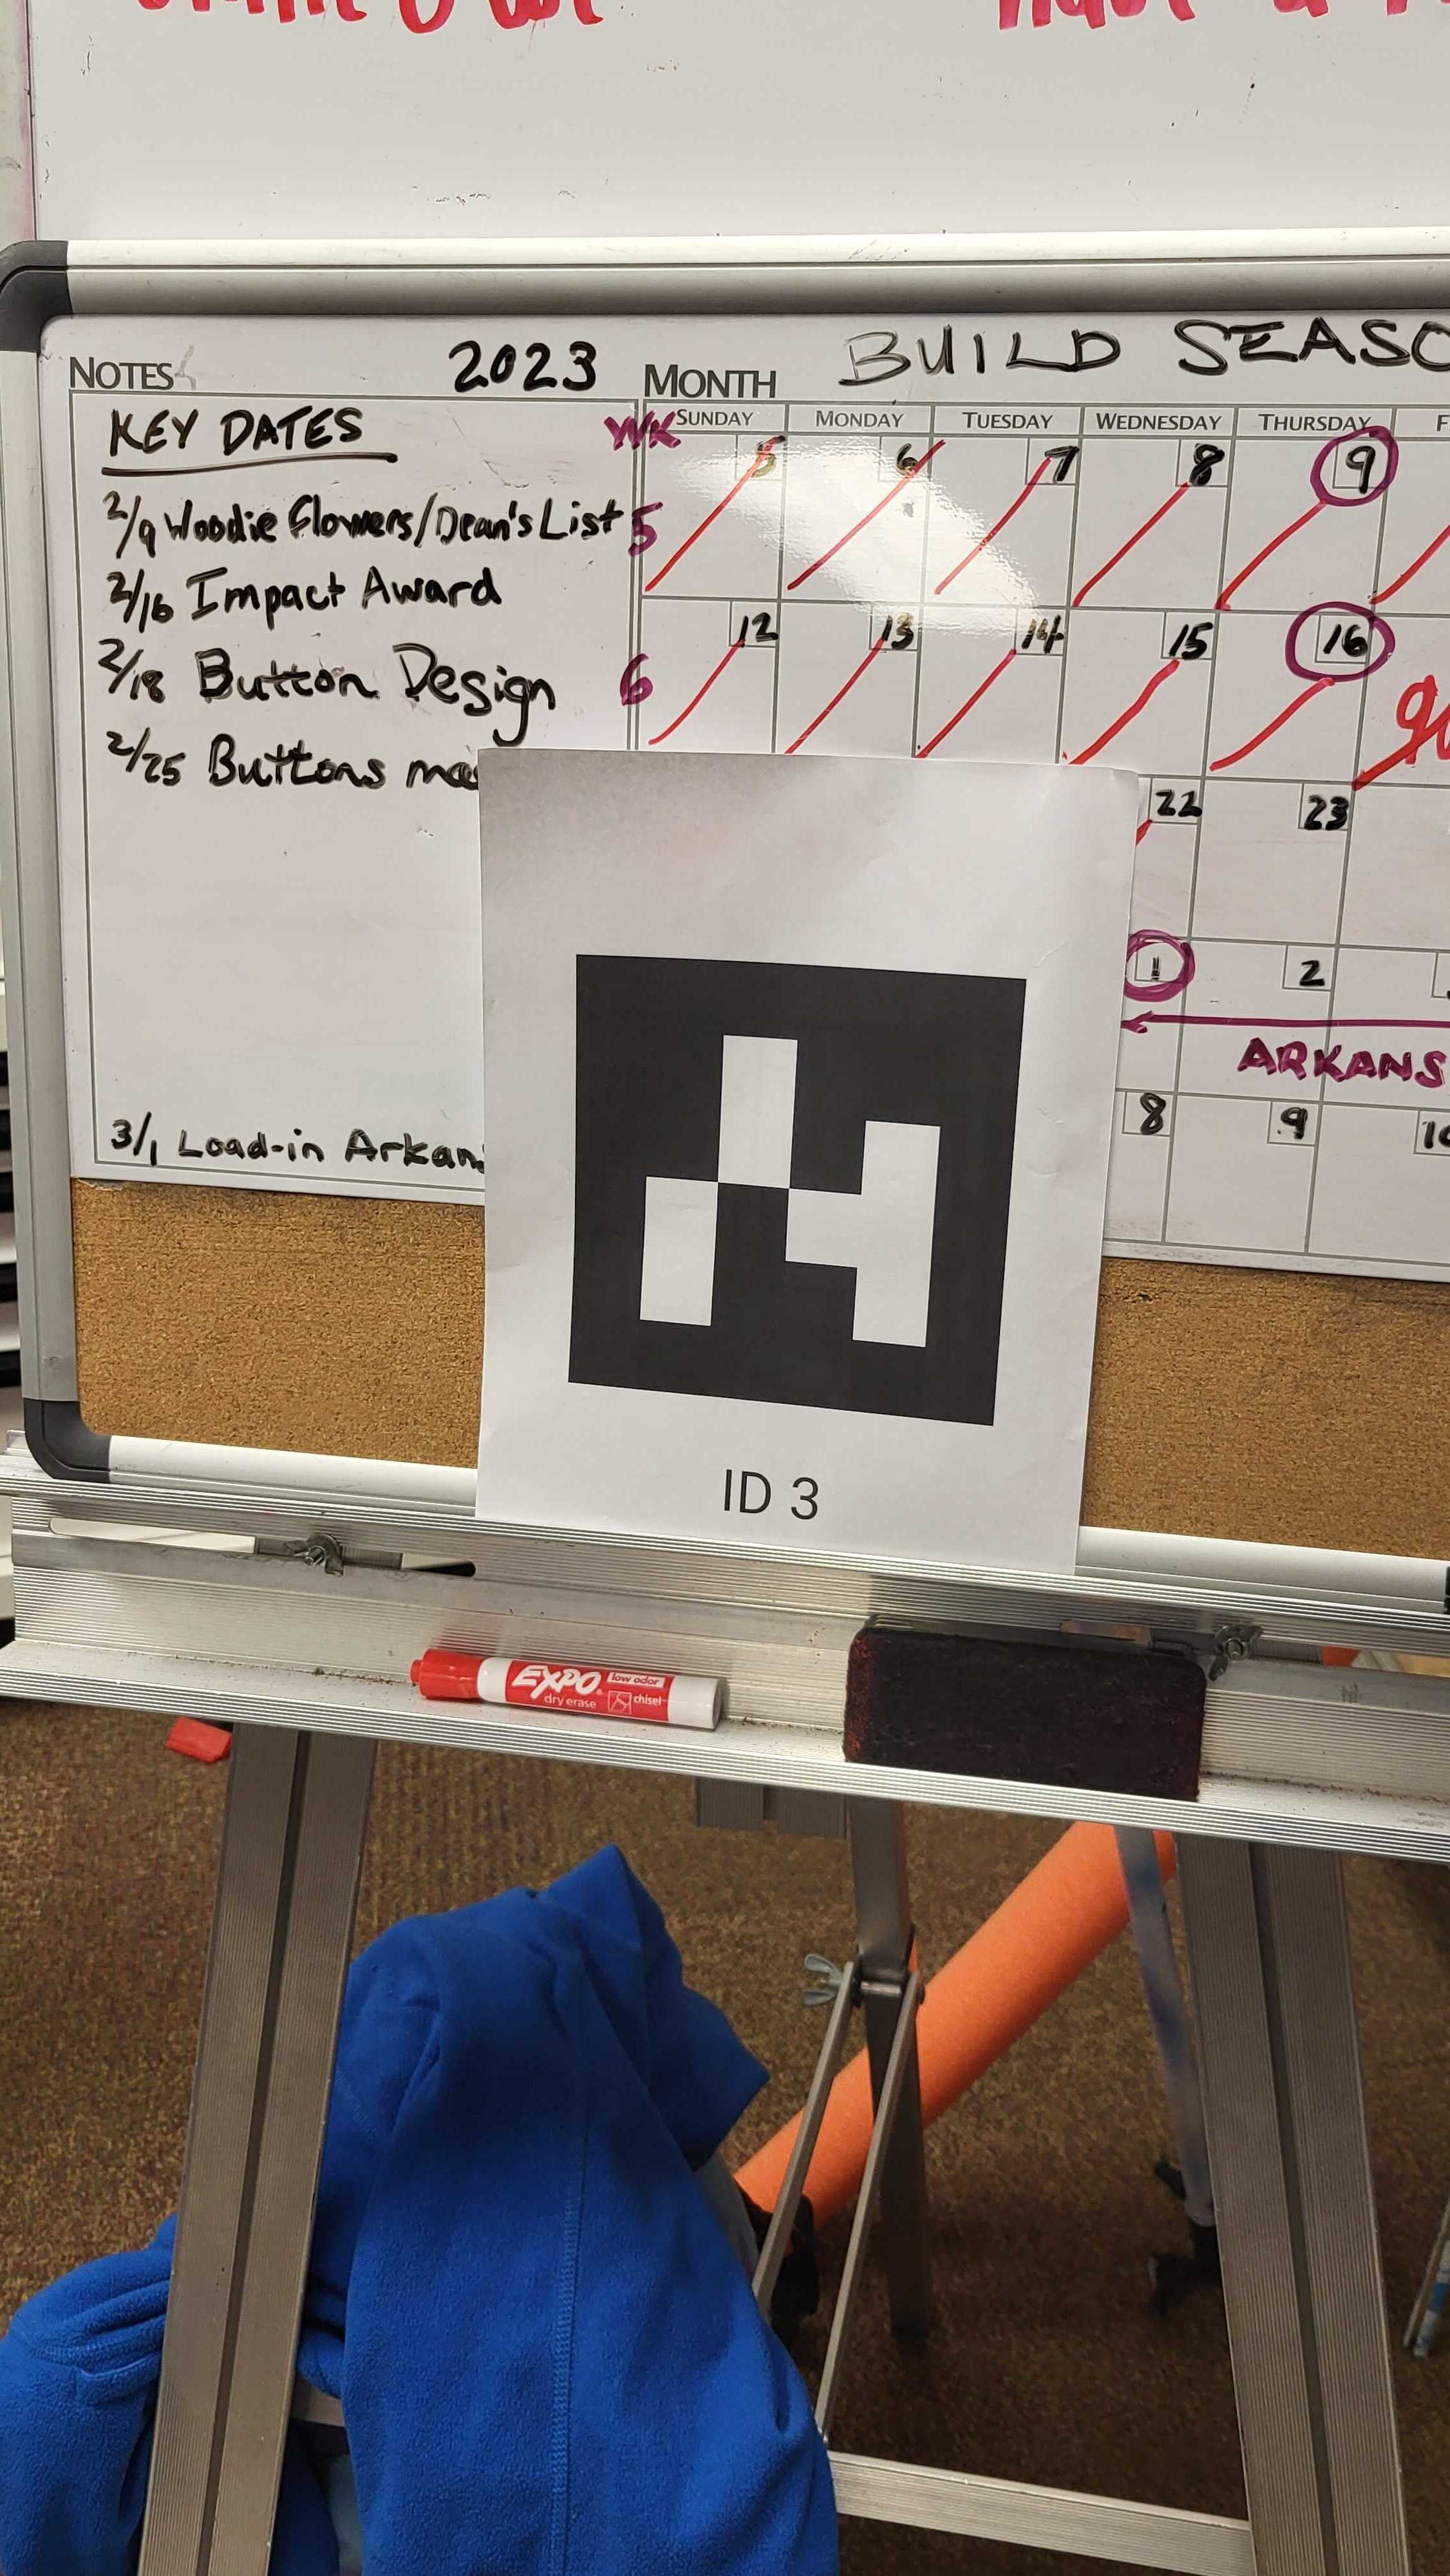 NOTES 2023
KEY DATES
2/9 Woodie Flowers/Dean's List
2/16 Impact Award
2/18 Button Design
2/25 Buttons
3/1 Load-in Arkans
MONTH BUILD SEASO
WK SUNDAY MONDAY TUESDAY WEDNESDAY THURSDAY F
5 5 6 7 8 9
6 12 13 14 15 16
22 23
1 2
ARKANS
8 9 10
ID 3
EXPO low odor
dry erase chisel